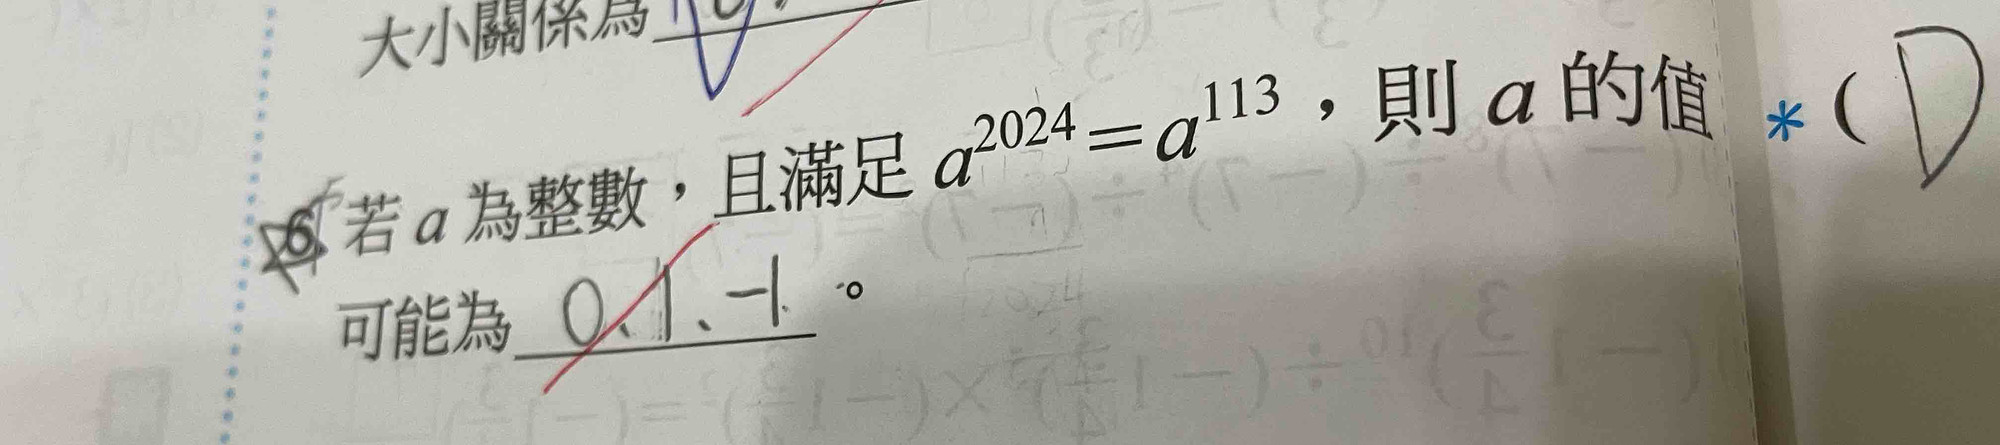 大小關係為
6. 若 a 為整數，且滿足 a²⁰²⁴＝a¹¹³，則 a 的值
可能為 0、1、-1 。
*( D